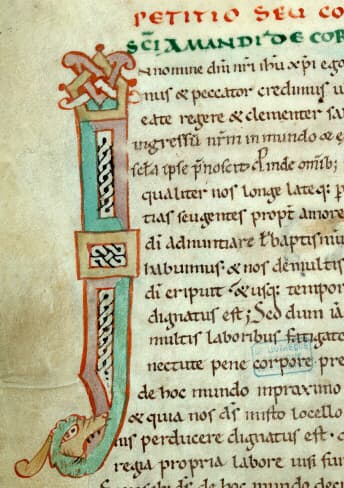 PETITIO SEU CO
SCI AMANDI DE COR
In nomine dni nri ihu xpi ego
nus & peccator credimus u
eate regere & clementer sa
ingressu nrm in mundo & e
ipse pnoscit Proinde omib;
qualiter nos longe lateq; p
tias seu gentes propt amore
di adnuntiare t baptismu
habuimus & nos de multis
di eripuit & usq; tempor
dignatus est; Sed dum ia
multis laboribus fatigato
nectute pene corpore pre
de hoc mundo inproximo
& quia nos ds in isto locello
nis perducere dignatus est.
regia propria labore uisi fui
de hoc mundo